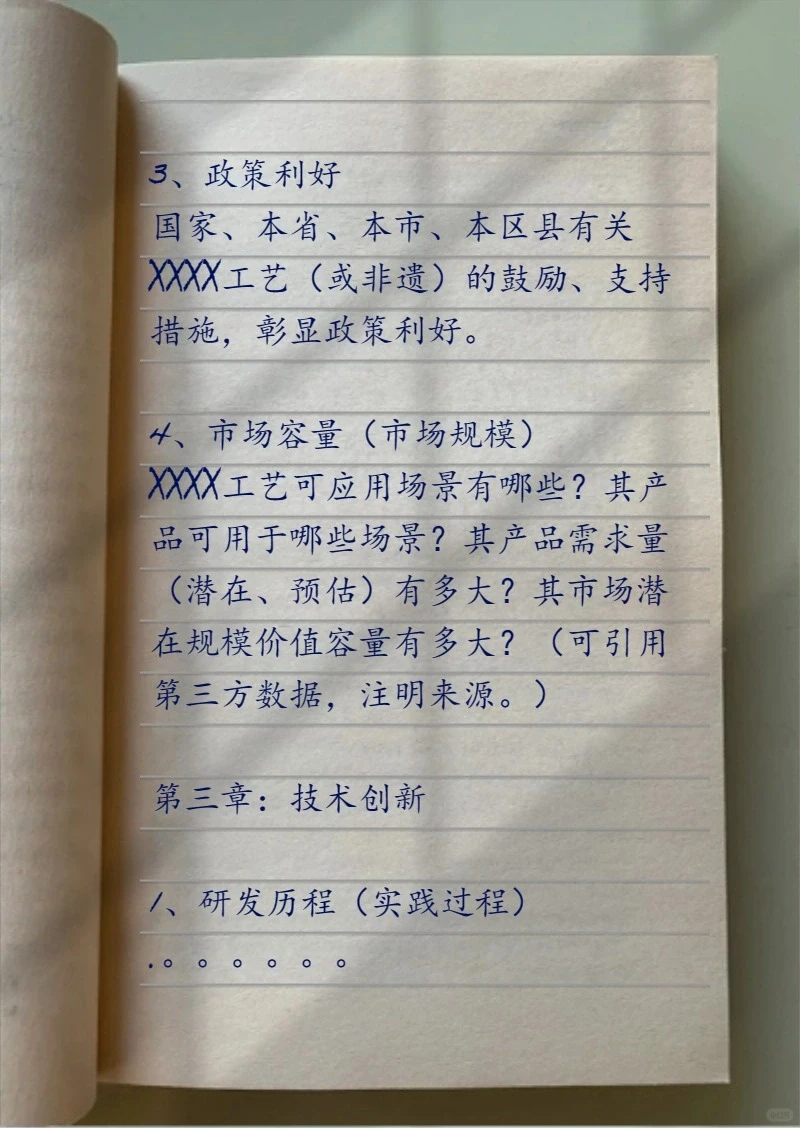 3、政策利好
国家、本省、本市、本区县有关
XXXX工艺（或非遗）的鼓励、支持
措施，彰显政策利好。
4、市场容量（市场规模）
XXXX工艺可应用场景有哪些？其产
品可用于哪些场景？其产品需求量
（潜在、预估）有多大？其市场潜
在规模价值容量有多大？（可引用
第三方数据，注明来源。）
第三章：技术创新
1、研发历程（实践过程）
.。。。。。。